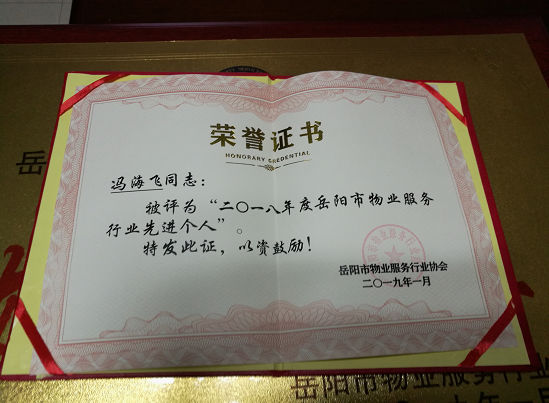 荣誉证书
HONORARY CREDENTIAL
冯海飞同志：
被评为“二〇一八年度岳阳市物业服务
行业先进个人”。
特发此证，以资鼓励！
岳阳市物业服务行业协会
二〇一九年一月
岳
岳阳市物业服务行业